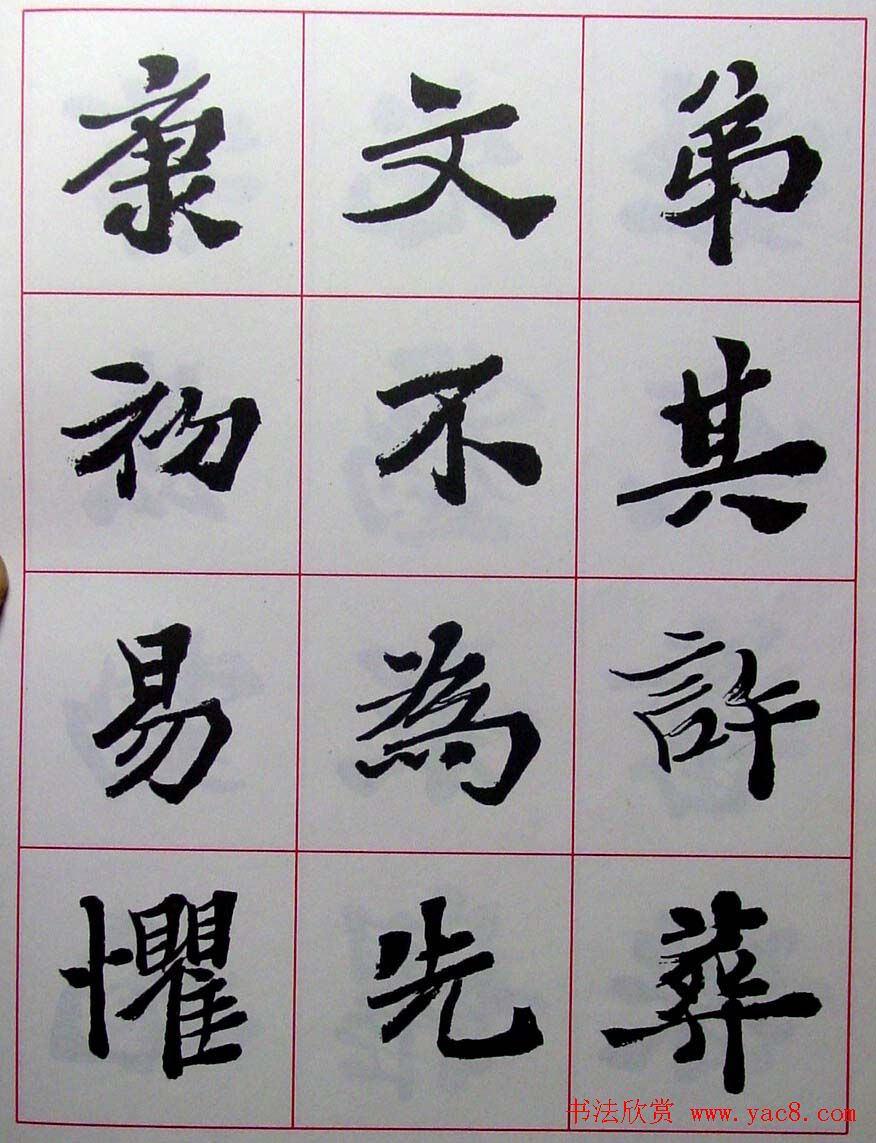 弟其許葬
文不為先
康初易懼
书法欣赏 www.yac8.com